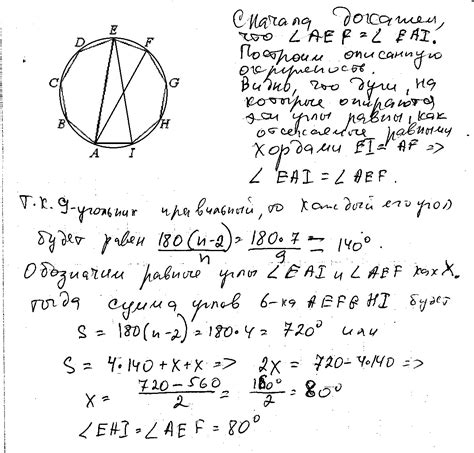 E
D
F
C
G
B
H
A
I
Сначала докажем,
что ∠AEF = ∠EAI.
Построим описанную
окружность.
Видно, что дуги, на
которые опираются
эти углы равны, как
отсекаемые равными
хордами EI = AF =>
∠EAI = ∠AEF.
Т.к. 9-угольник правильный, то каждый его угол
будет равен 180(n-2)/n = 180·7/9 = 140°.
Обозначим равные углы ∠EAI и ∠AEF как X.
тогда сумма углов 6-ка AEFGHI будет
S = 180(n-2) = 180·4 = 720° или
S = 4·140 + x + x => 2x = 720-4·140 =>
x = 720-560/2 = 160°/2 = 80°
∠EHI = ∠AEF = 80°